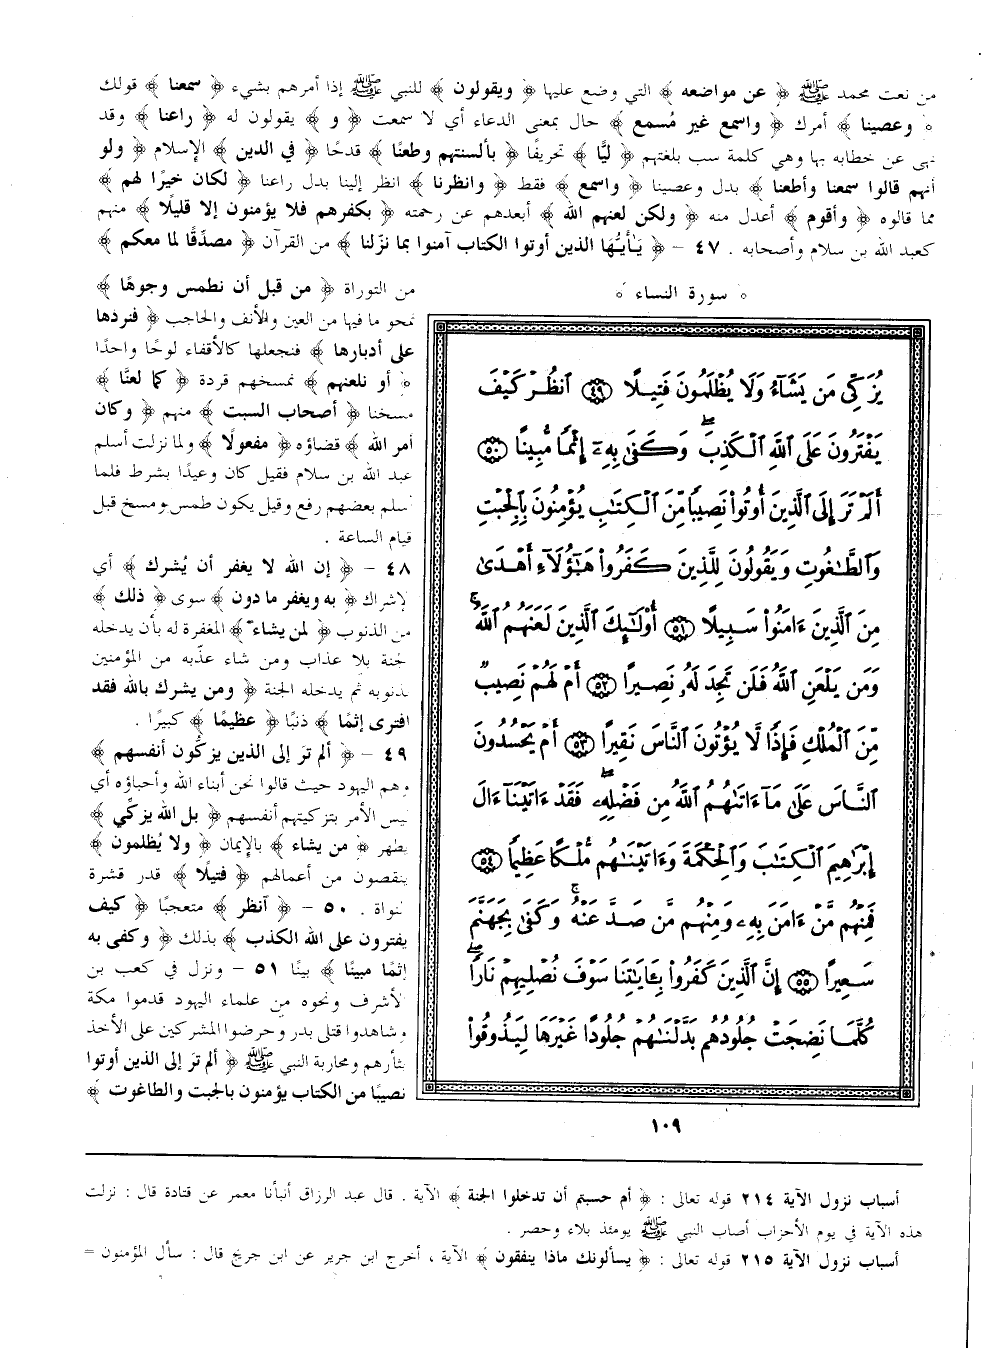 من نعت محمد ﷺ ﴿ عن مواضعه ﴾ التي وضع عليها ﴿ ويقولون ﴾ للنبي ﷺ إذا أمرهم بشيء ﴿ سمعنا ﴾ قولك
﴿ وعصينا ﴾ أمرك ﴿ واسمع غير مُسمع ﴾ حال بمعنى الدعاء أي لا سمعت ﴿ و ﴾ يقولون له ﴿ راعنا ﴾ وقد
نهى عن خطابه بها وهي كلمة سب بلغتهم ﴿ ليًّا ﴾ تحريفًا ﴿ بألسنتهم وطعنًا ﴾ قدحًا ﴿ في الدين ﴾ الإسلام ﴿ ولو
أنهم قالوا سمعنا وأطعنا ﴾ بدل وعصينا ﴿ واسمع ﴾ فقط ﴿ وانظرنا ﴾ انظر إلينا بدل راعنا ﴿ لكان خيرًا لهم ﴾
مما قالوه ﴿ وأقوم ﴾ أعدل منه ﴿ ولكن لعنهم الله ﴾ أبعدهم عن رحمته ﴿ بكفرهم فلا يؤمنون إلا قليلًا ﴾ منهم
كعبد الله بن سلام وأصحابه . ٤٧ - ﴿ يَأيُّها الذين أوتوا الكتاب آمنوا بما نزّلنا ﴾ من القرآن ﴿ مصدّقًا لما معكم ﴾
﴿ سورة النساء ﴾
يُزَكِّى مَن يَشَآءُ وَلَا يُظْلَمُونَ فَتِيلًا ٤٩ ٱنظُرْ كَيْفَ
يَفْتَرُونَ عَلَى ٱللَّهِ ٱلْكَذِبَ ۖ وَكَفَىٰ بِهِۦٓ إِثْمًا مُّبِينًا ٥٠
أَلَمْ تَرَ إِلَى ٱلَّذِينَ أُوتُوا۟ نَصِيبًا مِّنَ ٱلْكِتَٰبِ يُؤْمِنُونَ بِٱلْجِبْتِ
وَٱلطَّٰغُوتِ وَيَقُولُونَ لِلَّذِينَ كَفَرُوا۟ هَٰٓؤُلَآءِ أَهْدَىٰ
مِنَ ٱلَّذِينَ ءَامَنُوا۟ سَبِيلًا ٥١ أُو۟لَٰٓئِكَ ٱلَّذِينَ لَعَنَهُمُ ٱللَّهُ ۖ
وَمَن يَلْعَنِ ٱللَّهُ فَلَن تَجِدَ لَهُۥ نَصِيرًا ٥٢ أَمْ لَهُمْ نَصِيبٌ
مِّنَ ٱلْمُلْكِ فَإِذًا لَّا يُؤْتُونَ ٱلنَّاسَ نَقِيرًا ٥٣ أَمْ يَحْسُدُونَ
ٱلنَّاسَ عَلَىٰ مَآ ءَاتَىٰهُمُ ٱللَّهُ مِن فَضْلِهِۦ ۖ فَقَدْ ءَاتَيْنَآ ءَالَ
إِبْرَٰهِيمَ ٱلْكِتَٰبَ وَٱلْحِكْمَةَ وَءَاتَيْنَٰهُم مُّلْكًا عَظِيمًا ٥٤
فَمِنْهُم مَّنْ ءَامَنَ بِهِۦ وَمِنْهُم مَّن صَدَّ عَنْهُ ۚ وَكَفَىٰ بِجَهَنَّمَ
سَعِيرًا ٥٥ إِنَّ ٱلَّذِينَ كَفَرُوا۟ بِـَٔايَٰتِنَا سَوْفَ نُصْلِيهِمْ نَارًا ۖ
كُلَّمَا نَضِجَتْ جُلُودُهُم بَدَّلْنَٰهُمْ جُلُودًا غَيْرَهَا لِيَذُوقُوا۟
من التوراة ﴿ من قبل أن نطمس وجوهًا ﴾
نمحو ما فيها من العين والأنف والحاجب ﴿ فنردها
على أدبارها ﴾ فنجعلها كالأقفاء لوحًا واحدًا
﴿ أو نلعنهم ﴾ نمسخهم قردة ﴿ كما لعنَّا ﴾
مسخنا ﴿ أصحاب السبت ﴾ منهم ﴿ وكان
أمر الله ﴾ قضاؤه ﴿ مفعولًا ﴾ ولما نزلت أسلم
عبد الله بن سلام فقيل كان وعيدًا بشرط فلما
أسلم بعضهم رفع وقيل يكون طمس ومسخ قبل
قيام الساعة .
٤٨ - ﴿ إن الله لا يغفر أن يُشرك ﴾ أي
الإشراك ﴿ به ويغفر ما دون ﴾ سوى ﴿ ذلك ﴾
من الذنوب ﴿ لمن يشاء ﴾ المغفرة له بأن يدخله
الجنة بلا عذاب ومن شاء عذّبه من المؤمنين
بذنوبه ثم يدخله الجنة ﴿ ومن يشرك بالله فقد
افترى إثمًا ﴾ ذنبًا ﴿ عظيمًا ﴾ كبيرًا .
٤٩ - ﴿ ألم ترَ إلى الذين يزكّون أنفسهم ﴾
وهم اليهود حيث قالوا نحن أبناء الله وأحباؤه أي
ليس الأمر بتزكيتهم أنفسهم ﴿ بل الله يزكّي ﴾
يطهر ﴿ من يشاء ﴾ بالإيمان ﴿ ولا يُظلمون ﴾
ينقصون من أعمالهم ﴿ فتيلًا ﴾ قدر قشرة
النواة . ٥٠ - ﴿ آنظر ﴾ متعجبًا ﴿ كيف
يفترون على الله الكذب ﴾ بذلك ﴿ وكفى به
إثمًا مبينًا ﴾ بيّنًا ٥١ - ونزل في كعب بن
الأشرف ونحوه من علماء اليهود قدموا مكة
وشاهدوا قتلى بدر وحرضوا المشركين على الأخذ
بثأرهم ومحاربة النبي ﷺ ﴿ ألم ترَ إلى الذين أوتوا
نصيبًا من الكتاب يؤمنون بالجبت والطاغوت ﴾
١٠٩
أسباب نزول الآية ٢١٤ قوله تعالى : ﴿ أم حسبتم أن تدخلوا الجنة ﴾ الآية . قال عبد الرزاق أنبأنا معمر عن قتادة قال : نزلت
هذه الآية في يوم الأحزاب أصاب النبي ﷺ يومئذ بلاء وحصر .
أسباب نزول الآية ٢١٥ قوله تعالى : ﴿ يسألونك ماذا ينفقون ﴾ الآية ، أخرج ابن جرير عن ابن جريج قال : سأل المؤمنون =